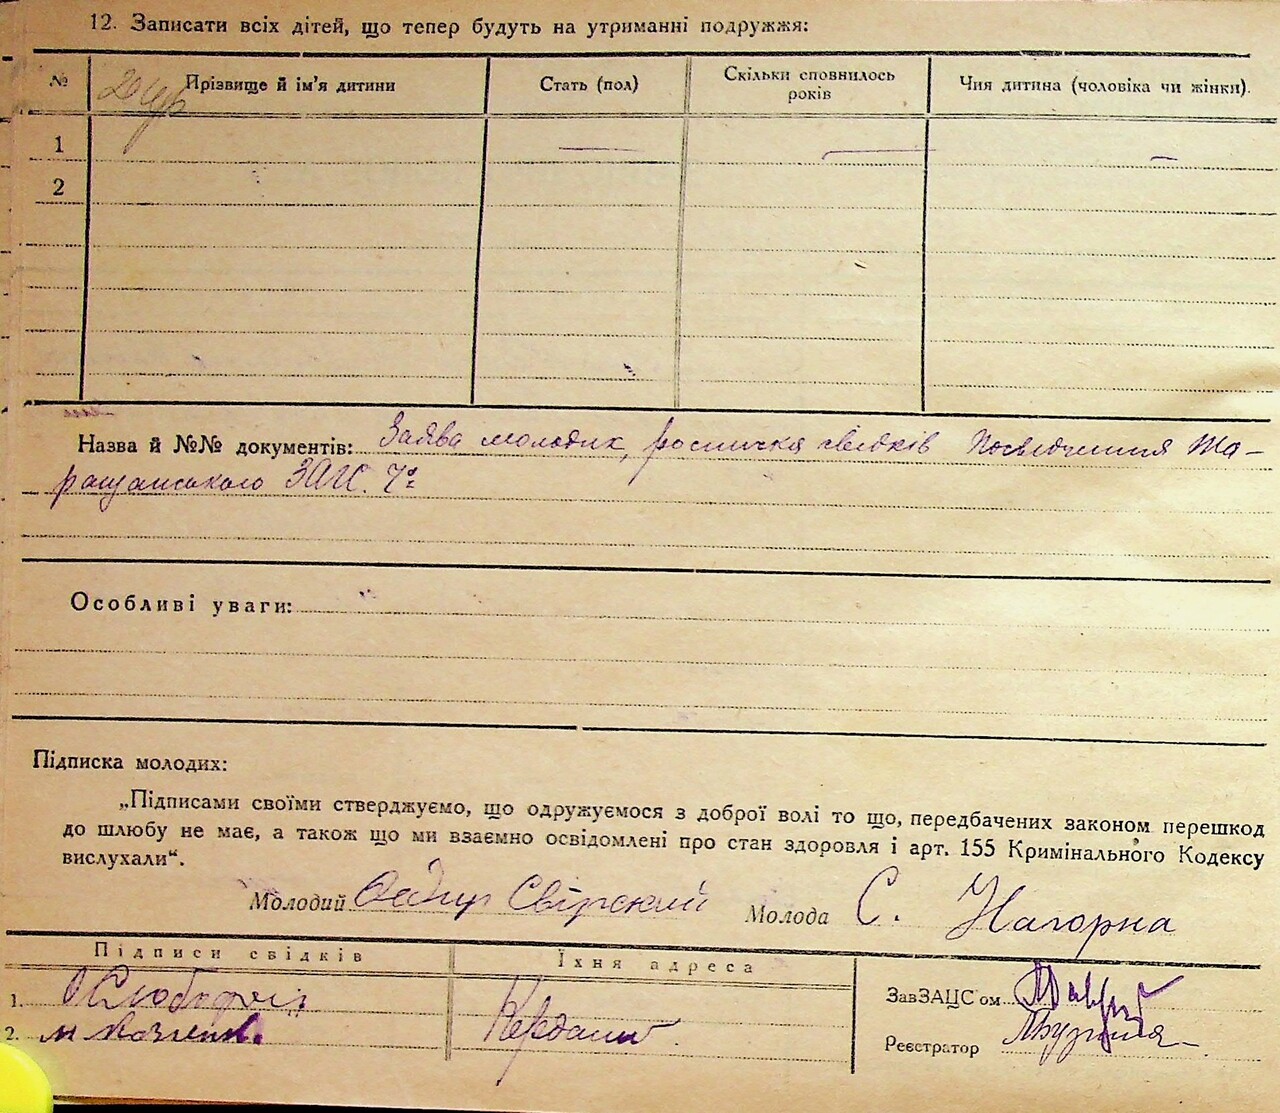 12. Записати всіх дітей, що тепер будуть на утриманні подружжя:
№ Прізвище й ім'я дитини Стать (пол) Скільки сповнилось років Чия дитина (чоловіка чи жінки).
1
2
Назва й №№ документів: Заява молодих, росписка свідків Посвідчення Та-
ращанського ЗАГС.
Особливі уваги:
Підписка молодих:
„Підписами своїми стверджуємо, що одружуємося з доброї волі то що, передбачених законом перешкод
до шлюбу не має, а також що ми взаємно освідомлені про стан здоровля і арт. 155 Кримінального Кодексу
вислухали“.
Молодий Свірский Молода С. Нагорна
Підписи свідків Їхня адреса
1. ЗавЗАЦС'ом
2. Реєстратор